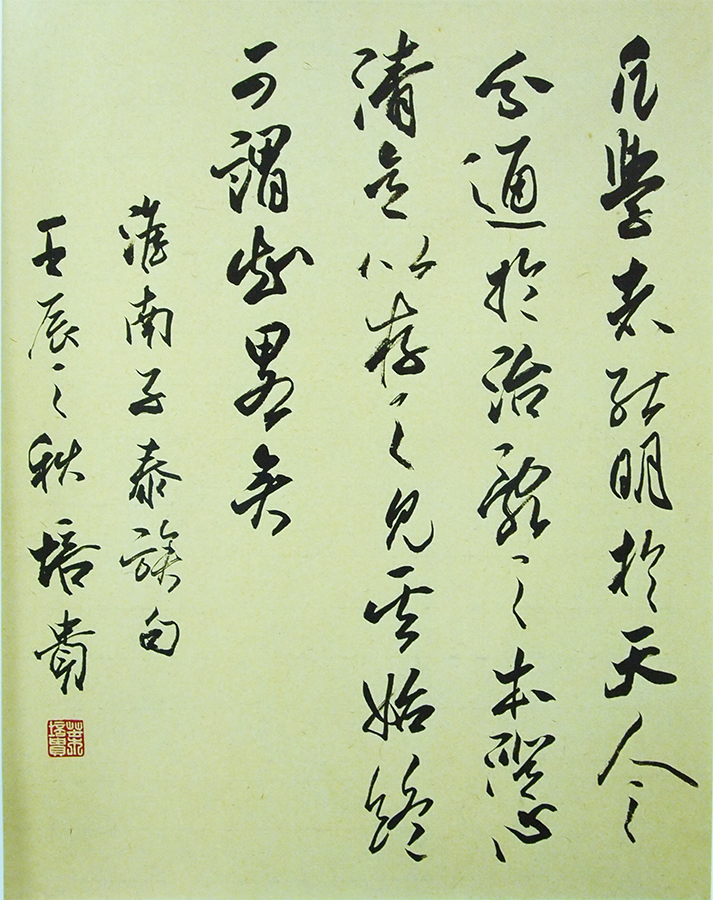 凡學者能明於天人之
分通於治亂之本澄心
清意以存之見其始終
可謂知畧矣
淮南子泰族句
壬辰之秋培貴
葉培貴